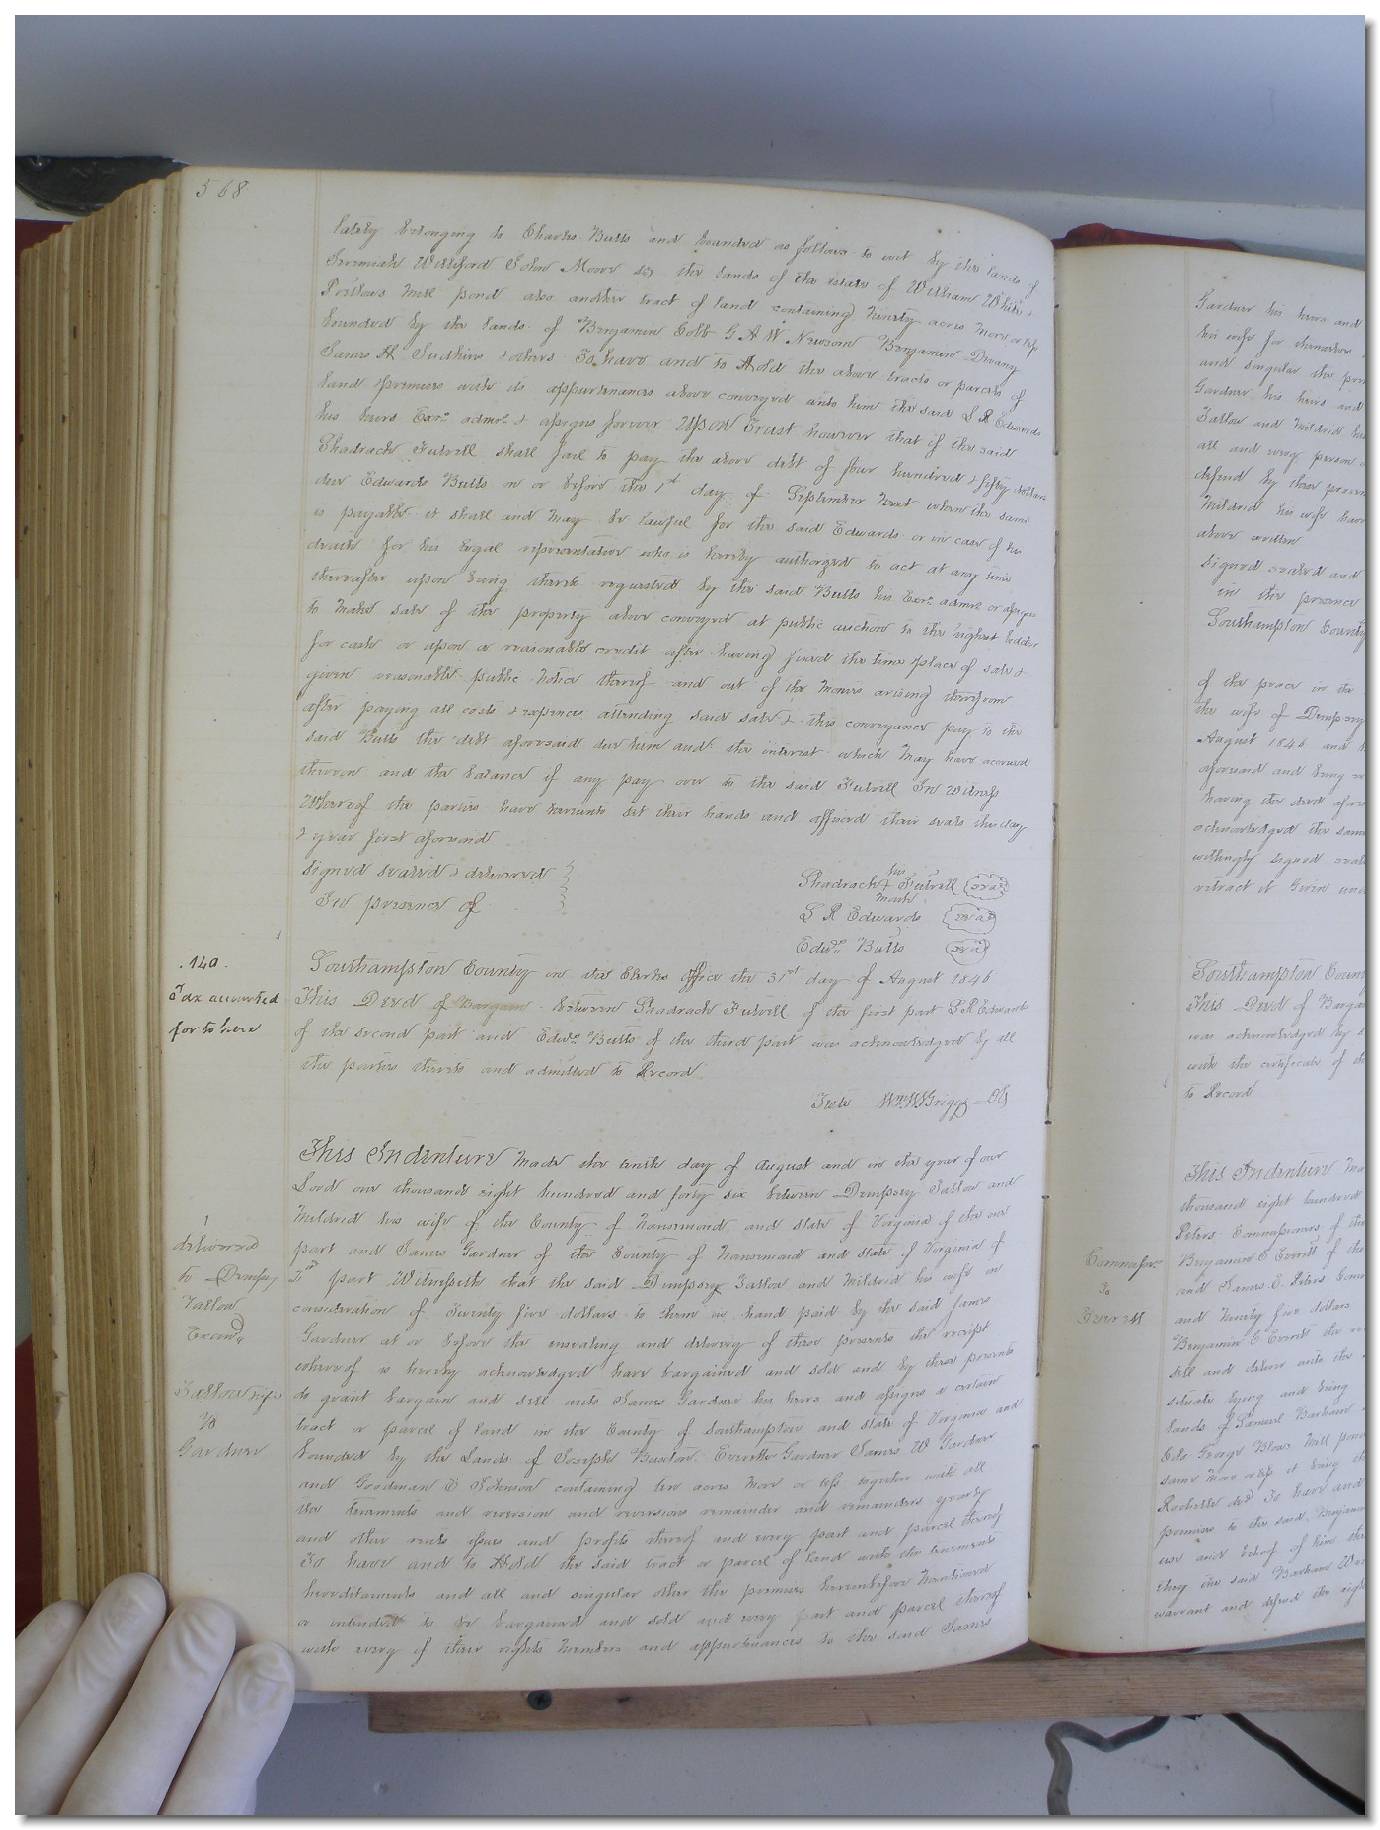 568
lately belonging to Charles Butts and bounded as follows to wit by the lands of
Jeremiah Williford John Moore by the lands of the estate of William White &
mill pond also another tract of land containing ninety acres more or less
bounded by the lands of Benjamin Cobb G A W Newsom Benjamin Devany
James A & others To have and to Hold the above tracts or parcels of
land & premises with its appurtenances above conveyed unto him the said S R Edwards
his heirs Exrs admrs & assigns forever Upon Trust however that if the said
Shadrach Futrell shall fail to pay the above debt of four hundred & fifty dollars
due Edwards Butts on or before the 1st day of September next when the same
is payable it shall and may be lawful for the said Edwards or in case of his
death for his legal representative who is hereby authorized to act at any time
thereafter upon being thereto requested by the said Butts his Exrs admrs or assigns
to make sale of the property above conveyed at public auction to the highest bidder
for cash or upon a reasonable credit after having fixed the time & place of sale &
given reasonable public notice thereof and out of the monies arising therefrom
after paying all costs & expences attending said sale & this conveyance pay to the
said Butts the debt aforesaid due him and the interest which may have accrued
thereon and the balance if any pay over to the said Futrell In Witness
Whereof the parties have hereunto set their hands and affixed their seals the day
& year first aforesaid
Signed sealed & delivered
In presence of
his
Shadrach + Futrell seal
mark
S R Edwards seal
Edwds Butts seal
.140.
Tax accounted
for to here
Southampton County in the Clerks office the 31st day of August 1846
This Deed of Bargain between Shadrach Futrell of the first part S R Edwards
of the second part and Edwds Butts of the third part was acknowledged by all
the parties thereto and admitted to Record
Teste
This Indenture made the tenth day of August and in the year of our
Lord one thousand eight hundred and forty six between Dempsey Tallow and
Mildred his wife of the County of Nansemond and state of Virginia of the one
part and James Gardner of the County of Nansemond and state of Virginia of
2nd part Witnesseth that the said Dempsey Tallow and Mildred his wife in
consideration of Seventy five dollars to them in hand paid by the said James
Gardner at or before the ensealing and delivery of these presents the receipt
whereof is hereby acknowledged have bargained and sold and by these presents
do grant bargain and sell unto James Gardner his heirs and assigns a certain
tract or parcel of land in the County of Southampton and state of Virginia and
bounded by the Lands of Joseph Buxton Everette Gardner James W Gardner
and Goodman & Johnson containing ten acres more or less together with all
the tenements and reversion and reversions remainder and remainders yearly
and other rents issues and profits thereof and every part and parcel thereof
To have and to Hold the said tract or parcel of land with the tenements
hereditaments and all and singular other the premises hereinbefore mentioned
or intended to be bargained and sold and every part and parcel thereof
with every of their rights members and appurtenances to the said James
delivered
to Dempsey
Tallow
Tallow & wife
To
Gardner
Gardner his heirs and
his wife for themselves
and singular the
Gardner his heirs and
Tallow and Mildred his
all and every person
defend by these
Mildred his wife have
above written
Signed sealed and
in the presence
Southampton County
of the peace in the
the wife of Dempsey
August 1846 and
aforesaid and being
having the deed
acknowledged the same
willingly signed
retract it Given
Southampton
This Deed of
was acknowledged by
with the certificate of
to Record
This Indenture
thousand eight hundred
Peters Commissioners of the
Benjamin E Everett of the
and James E. Peters
and Ninety five dollars
Benjamin E Everett the
sell and deliver unto the
situate lying and being
lands of Samuel Barham
George Blows Mill
same more or less it being
decd To have and
premises to the said Benjamin
use and behoof of him the
they the said Barham
warrant and defend the right
To
Everett